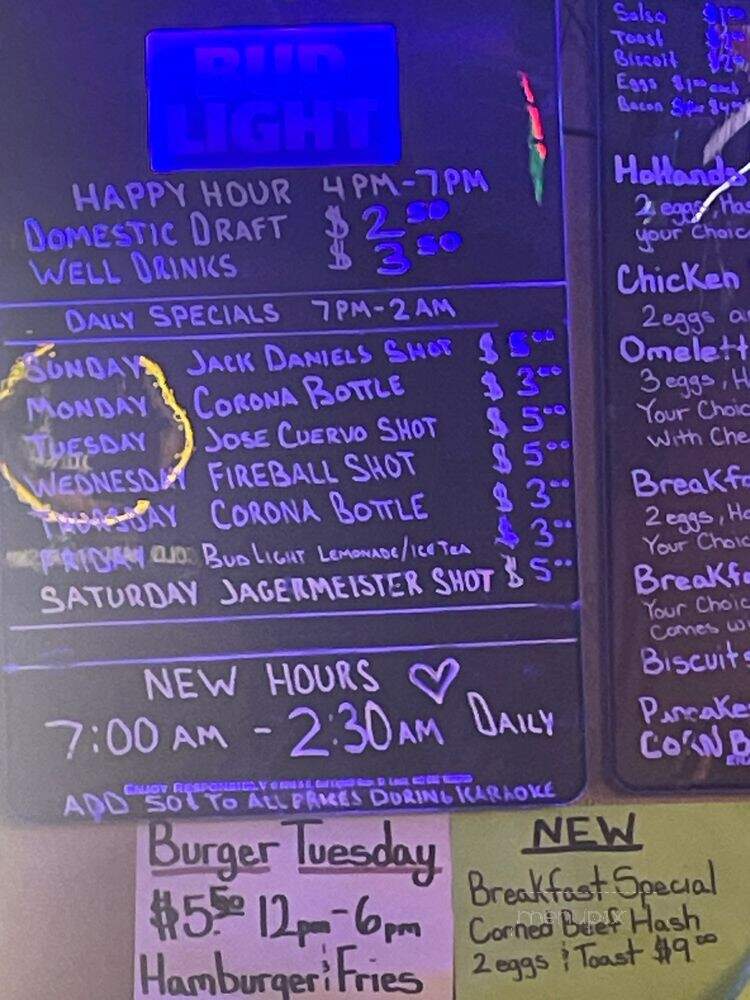 BUD
LIGHT
HAPPY HOUR 4PM-7PM
DOMESTIC DRAFT $2.50
WELL DRINKS $3.50
DAILY SPECIALS 7PM-2AM
SUNDAY JACK DANIELS SHOT $5.00
MONDAY CORONA BOTTLE $3.00
TUESDAY JOSE CUERVO SHOT $5.00
WEDNESDAY FIREBALL SHOT $5.00
THURSDAY CORONA BOTTLE $3.00
FRIDAY BUD LIGHT LEMONADE/ICE TEA $3.00
SATURDAY JAGERMEISTER SHOT $5.00
NEW HOURS ♡
7:00 AM - 2:30 AM DAILY
ENJOY RESPONSIBLY
ADD 50¢ TO ALL PRICES DURING KARAOKE
Salsa
Toast
Biscuit
Eggs $1.00 each
Bacon
2 eggs, Ha
your Choic
Chicken
2 eggs a
Omelett
3 eggs, H
Your Choic
With Che
Breakfa
2 eggs, Ha
Your Choic
Breakfa
Your Choic
Comes wi
Biscuits
Pancake
Burger Tuesday
$5.50 12pm-6pm
Hamburger & Fries
NEW
Breakfast Special
Corned Beef Hash
2 eggs & Toast $9.00
menupix